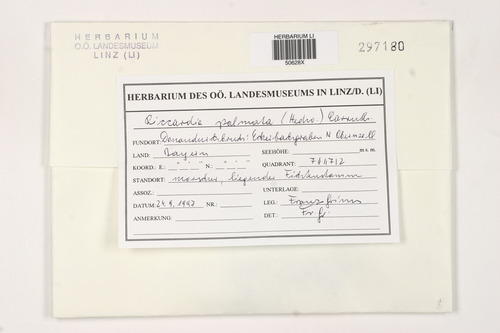 HERBARIUM
O.Ö. LANDESMUSEUM
LINZ (LI)
HERBARIUM LI
50628X
297180
HERBARIUM DES OÖ. LANDESMUSEUMS IN LINZ/D. (LI)
Riccardia palmata (Hedw.) Carruth.
FUNDORT: N Obernzell
LAND: Bayern SEEHÖHE: m s. m.
KOORD.: E: ° ' " N: ° ' " QUADRANT:
STANDORT: morscher, liegender Fichtenstamm
ASSOZ.: UNTERLAGE:
DATUM: 24.9.1997 NR.: LEG.: Franz Grims
ANMERKUNG: DET.: Fr. Gr.